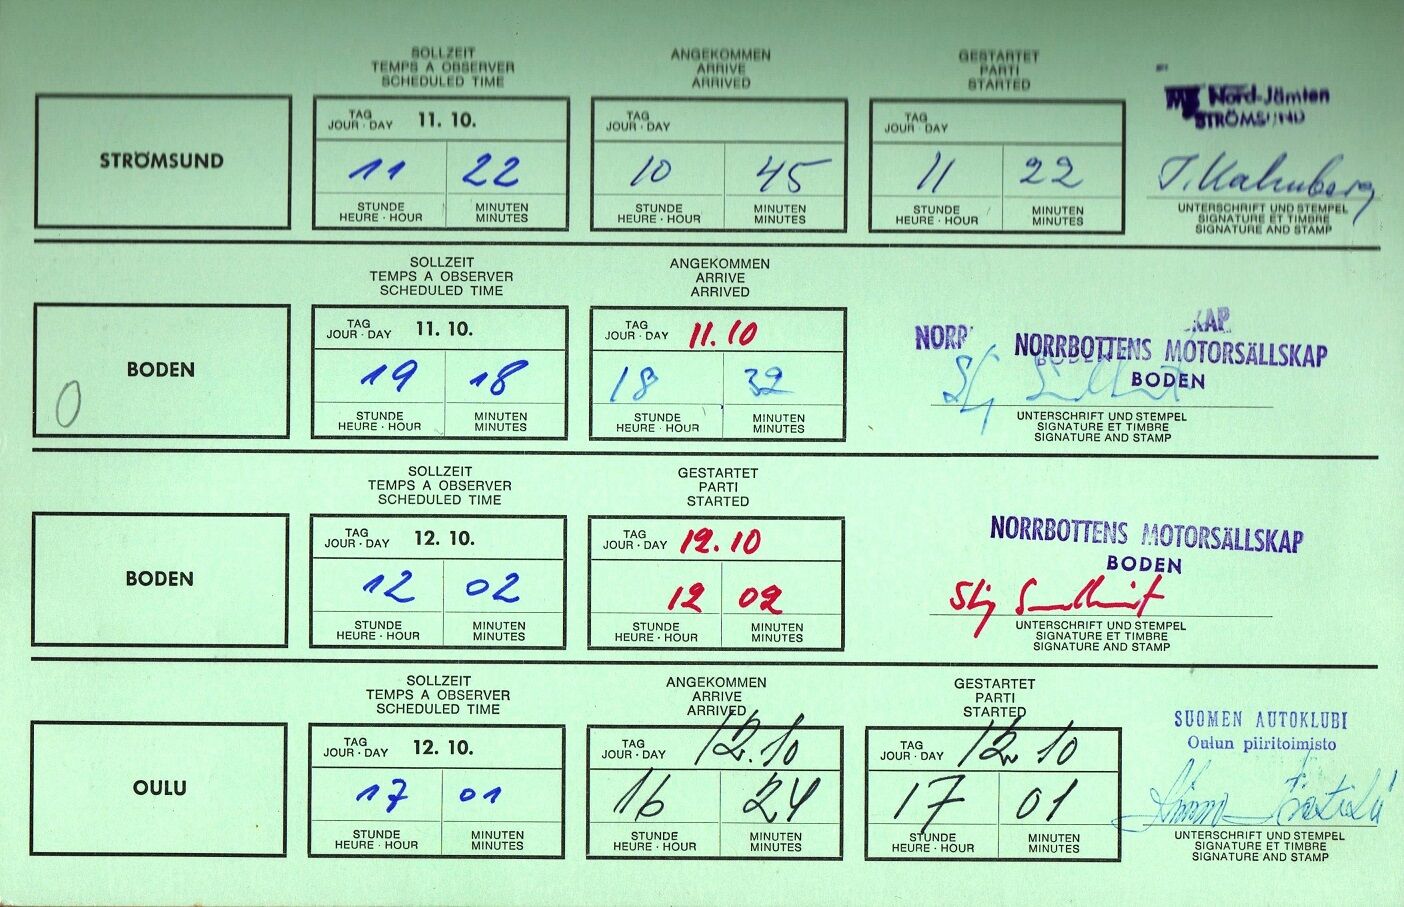 SOLLZEIT
TEMPS A OBSERVER
SCHEDULED TIME
ANGEKOMMEN
ARRIVE
ARRIVED
GESTARTET
PARTI
STARTED
STRÖMSUND
TAG
JOUR · DAY 11. 10.
11 22
STUNDE MINUTEN
HEURE · HOUR MINUTES
TAG
JOUR · DAY
10 45
STUNDE MINUTEN
HEURE · HOUR MINUTES
TAG
JOUR · DAY
11 22
STUNDE MINUTEN
HEURE · HOUR MINUTES
Nord-Jämten
STRÖMSUND
UNTERSCHRIFT UND STEMPEL
SIGNATURE ET TIMBRE
SIGNATURE AND STAMP
SOLLZEIT
TEMPS A OBSERVER
SCHEDULED TIME
ANGEKOMMEN
ARRIVE
ARRIVED
BODEN
0
TAG
JOUR · DAY 11. 10.
19 18
STUNDE MINUTEN
HEURE · HOUR MINUTES
TAG
JOUR · DAY 11. 10
18 32
STUNDE MINUTEN
HEURE · HOUR MINUTES
NORR KAP
NORRBOTTENS MOTORSÄLLSKAP
BODEN
UNTERSCHRIFT UND STEMPEL
SIGNATURE ET TIMBRE
SIGNATURE AND STAMP
SOLLZEIT
TEMPS A OBSERVER
SCHEDULED TIME
GESTARTET
PARTI
STARTED
BODEN
TAG
JOUR · DAY 12. 10.
12 02
STUNDE MINUTEN
HEURE · HOUR MINUTES
TAG
JOUR · DAY 12. 10
12 02
STUNDE MINUTEN
HEURE · HOUR MINUTES
NORRBOTTENS MOTORSÄLLSKAP
BODEN
Stig
UNTERSCHRIFT UND STEMPEL
SIGNATURE ET TIMBRE
SIGNATURE AND STAMP
SOLLZEIT
TEMPS A OBSERVER
SCHEDULED TIME
ANGEKOMMEN
ARRIVE
ARRIVED
GESTARTET
PARTI
STARTED
OULU
TAG
JOUR · DAY 12. 10.
17 01
STUNDE MINUTEN
HEURE · HOUR MINUTES
TAG
JOUR · DAY 12. 10
16 24
STUNDE MINUTEN
HEURE · HOUR MINUTES
TAG
JOUR · DAY 12. 10
17 01
STUNDE MINUTEN
HEURE · HOUR MINUTES
SUOMEN AUTOKLUBI
Oulun piiritoimisto
UNTERSCHRIFT UND STEMPEL
SIGNATURE ET TIMBRE
SIGNATURE AND STAMP